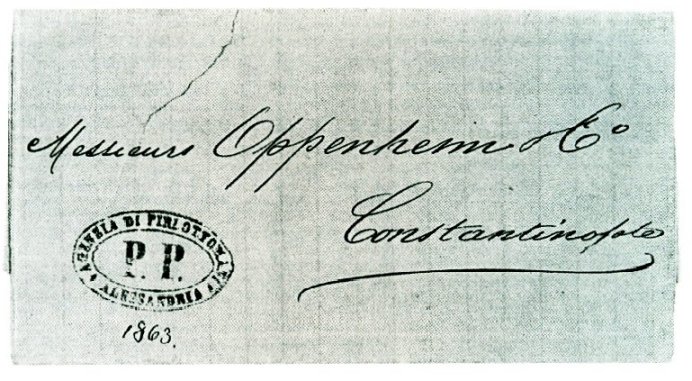 Messieurs Oppenheim & Co
Constantinople
AGENZIA DI
P. P.
ALESSANDRIA
1863.